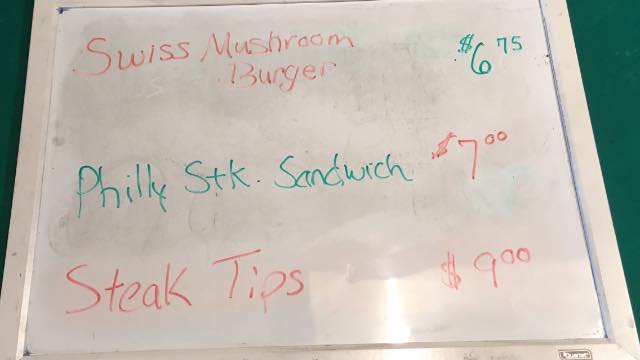 Swiss Mushroom $6.75
Burger
Philly Stk. Sandwich $7.00
Steak Tips $9.00
Quartet